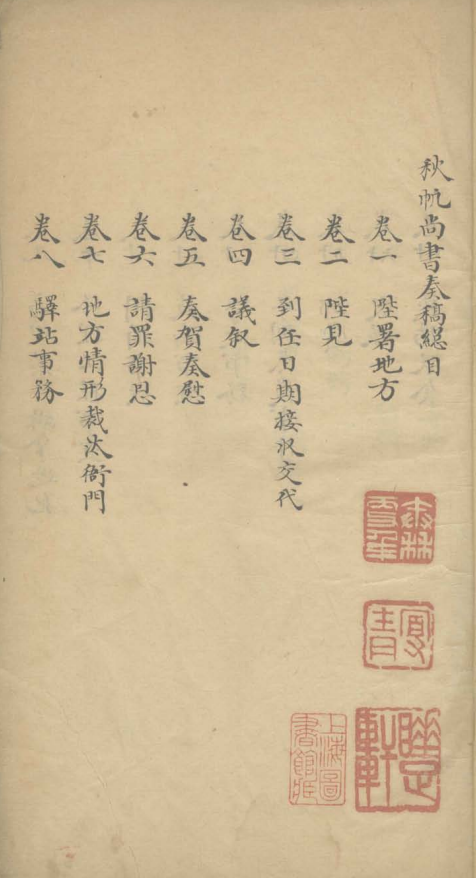 秋帆尚書奏稿總目
卷一 陞署地方
卷二 陛見
卷三 到任日期接収交代
卷四 議叙
卷五 奏賀奏慰
卷六 請罪謝恩
卷七 地方情形裁汰衙門
卷八 驛站事務
上海圖書館藏